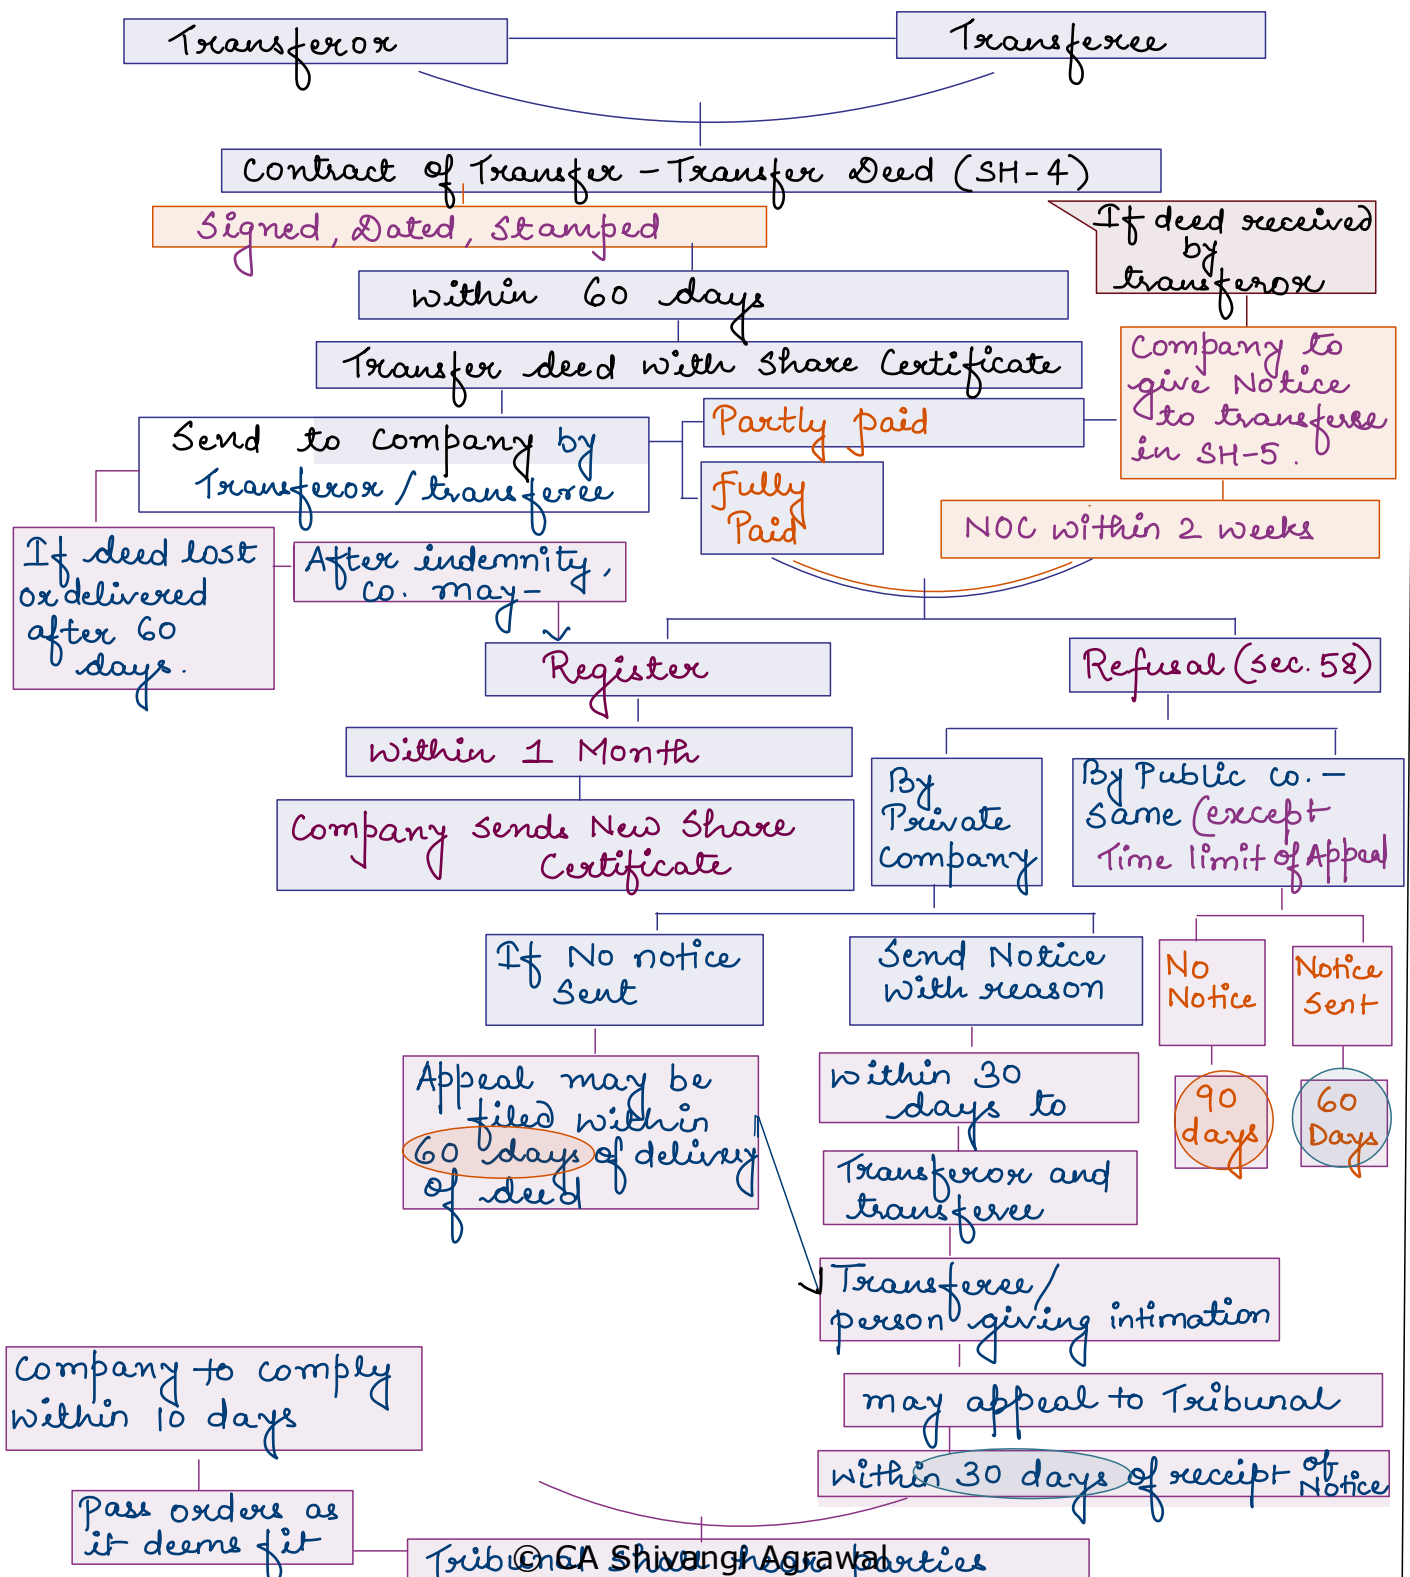 Transferor
Transferee
Contract of Transfer - Transfer Deed (SH-4)
Signed, Dated, Stamped
If deed received
by
transferor
within 60 days
Transfer deed with Share Certificate
Company to
give Notice
to transferee
in SH-5.
Send to Company by
Transferor / transferee
Partly paid
Fully
Paid
NOC within 2 weeks
If deed lost
or delivered
after 60
days.
After indemnity,
co. may-
Register
Refusal (sec. 58)
within 1 Month
Company sends New Share
Certificate
By
Private
Company
By Public co. -
Same (except
Time limit of Appeal
If No notice
Sent
Send Notice
with reason
No
Notice
Notice
Sent
Appeal may be
filed within
60 days of delivery
of deed
within 30
days to
90
days
60
Days
Transferor and
transferee
Transferee/
person giving intimation
may appeal to Tribunal
within 30 days of receipt of
Notice
Company to comply
within 10 days
Pass orders as
it deems fit
Tribunal shall hear parties
© CA Shivangi Agrawal